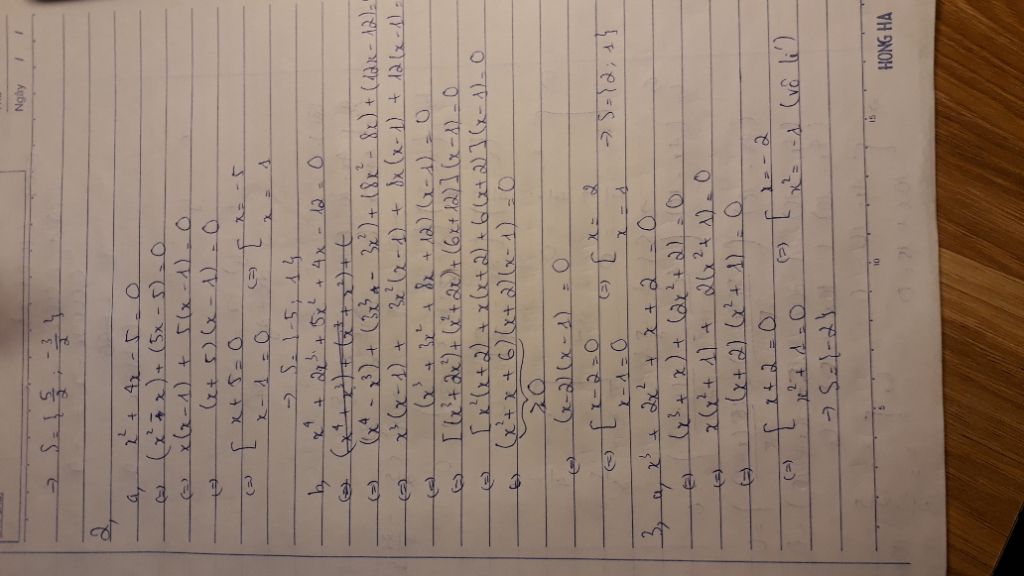 Ngày / /
→ S = { 5/2 ; -3/2 }
2,
a, x² + 4x - 5 = 0
(=) (x² - x) + (5x - 5) = 0
(=) x(x - 1) + 5(x - 1) = 0
(=) (x + 5)(x - 1) = 0
(=) [ x + 5 = 0 (=) [ x = -5
x - 1 = 0 x = 1
→ S = { -5; 1 }
b, x⁴ + 2x³ + 5x² + 4x - 12 = 0
(=) (x⁴ - x³) + (3x³ - 3x²) + (8x² - 8x) + (12x - 12) =
(=) x³(x - 1) + 3x²(x - 1) + 8x(x - 1) + 12(x - 1) =
(=) (x³ + 3x² + 8x + 12)(x - 1) = 0
(=) [(x³ + 2x²) + (x² + 2x) + (6x + 12)](x - 1) = 0
(=) [x²(x + 2) + x(x + 2) + 6(x + 2)](x - 1) = 0
(=) (x² + x + 6)(x + 2)(x - 1) = 0
>0
(=) (x - 2)(x - 1) = 0
(=) [ x - 2 = 0 (=) [ x = 2 → S = { 2; 1 }
x - 1 = 0 x = 1
3, a, x³ + 2x² + x + 2 = 0
(=) (x³ + x) + (2x² + 2) = 0
(=) x(x² + 1) + 2(x² + 1) = 0
(=) (x + 2)(x² + 1) = 0
(=) [ x + 2 = 0 (=) [ x = -2
x² + 1 = 0 x² = -1 (vô lí)
→ S = { -2 }
5 10 15
HONG HA